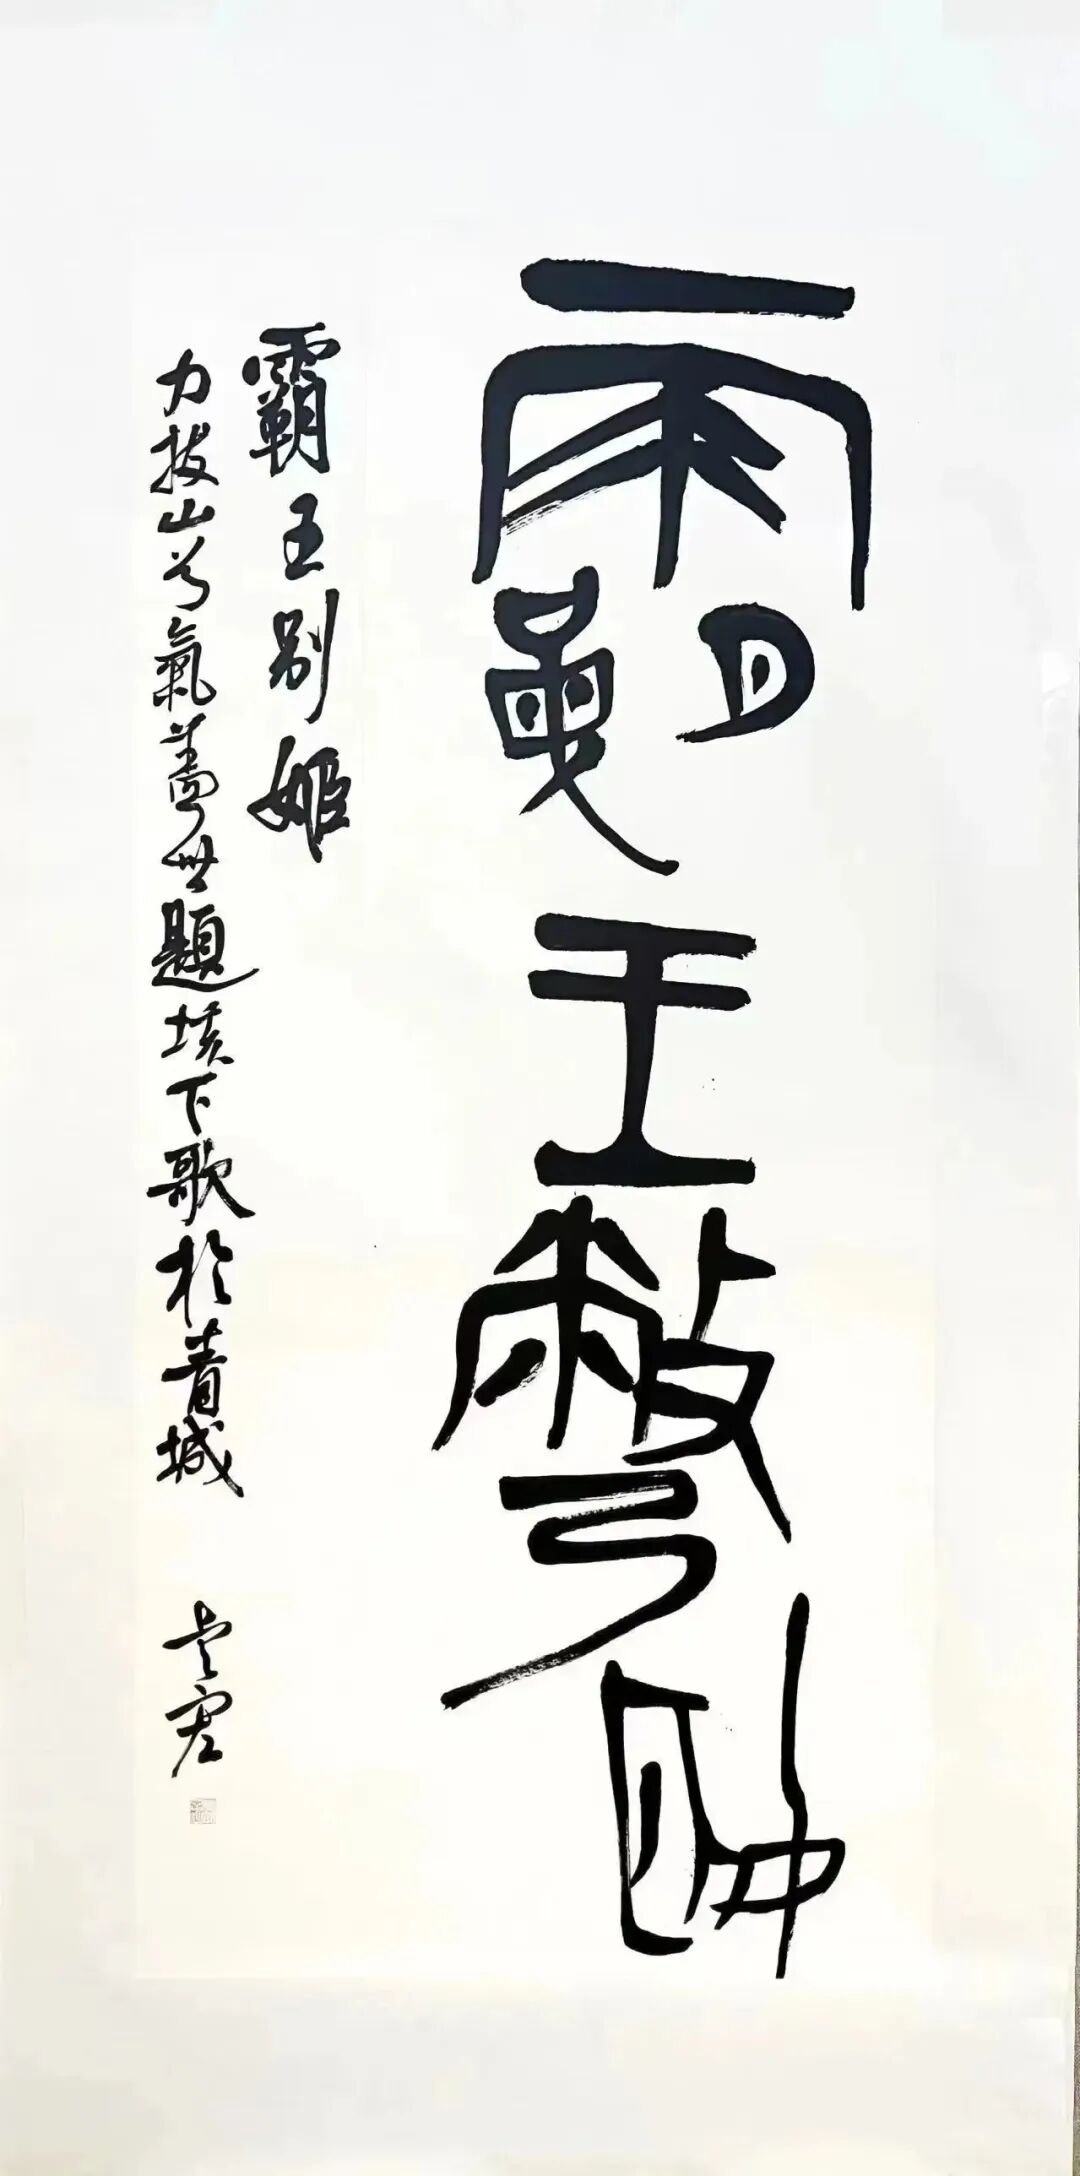 霸王彆姬
霸王别姬
力拔山兮氣蓋世題垓下歌於青城